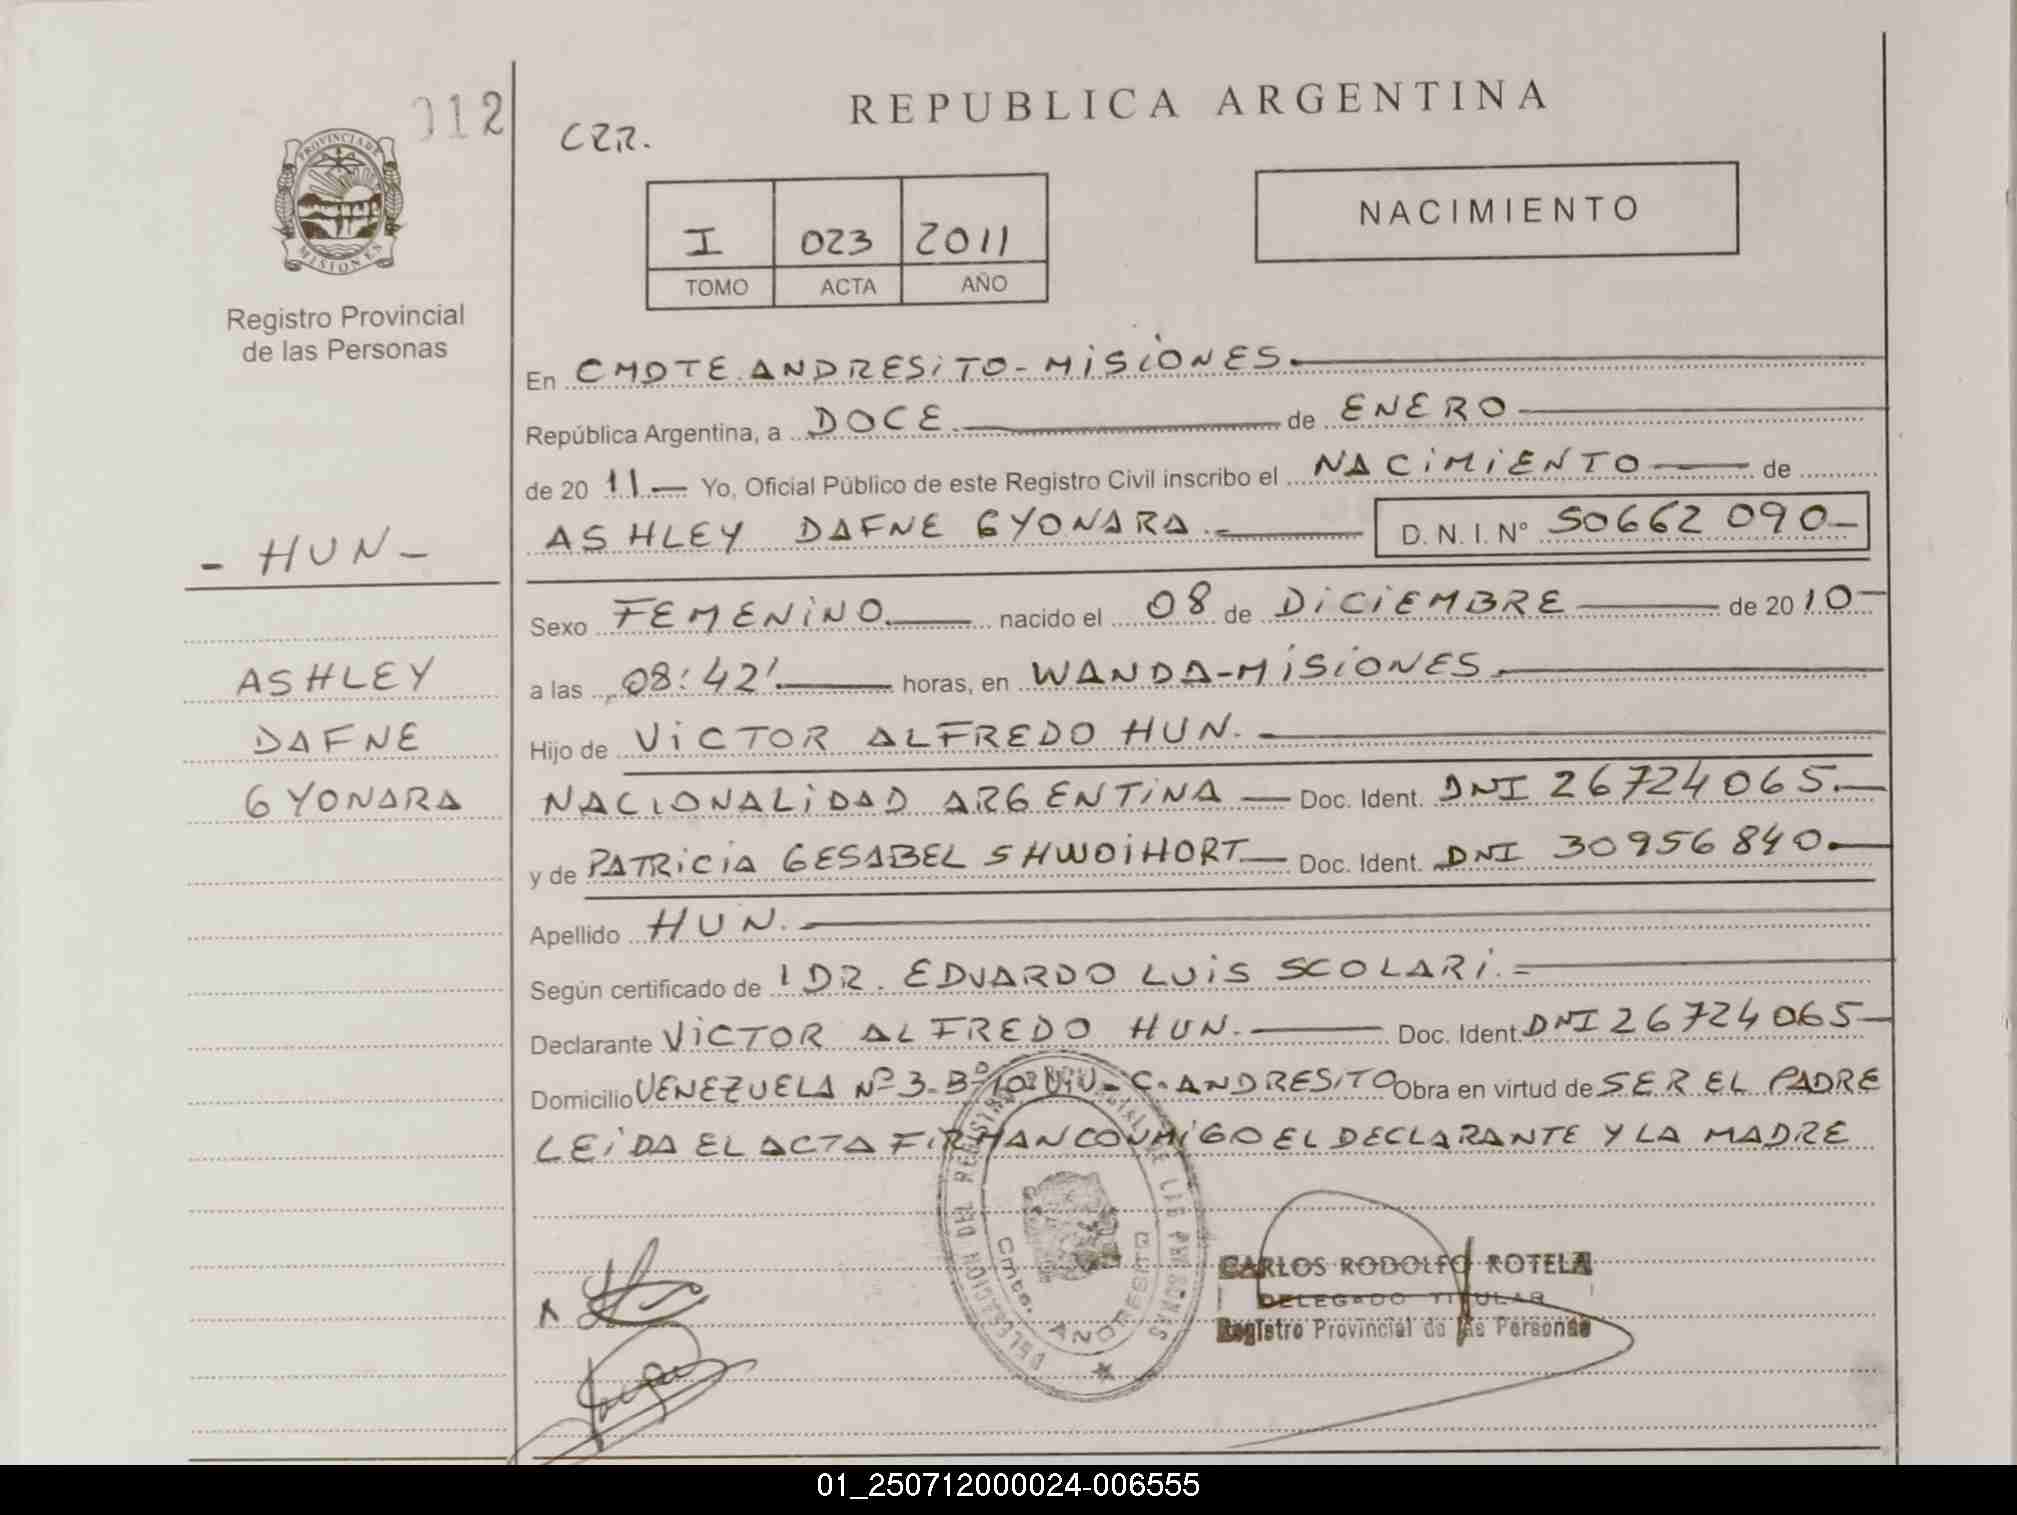 012
REPUBLICA ARGENTINA
CZR.
PROVINCIA DE
MISIONES
NACIMIENTO
I 023 2011
TOMO ACTA AÑO
Registro Provincial
de las Personas
En CMDTE ANDRESITO - MISIONES.
República Argentina, a DOCE de ENERO
de 2011 Yo, Oficial Público de este Registro Civil inscribo el NACIMIENTO de
ASHLEY DAFNE GYONARA. D. N. I. Nº 50662 090
- HUN -
Sexo FEMENINO nacido el 08 de DICIEMBRE de 2010
ASHLEY
a las 08:42' horas, en WANDA - MISIONES
DAFNE
Hijo de VICTOR ALFREDO HUN.
GYONARA
NACIONALIDAD ARGENTINA Doc. Ident. DNI 26724065.
y de PATRICIA GESABEL SHWOIHORT Doc. Ident. DNI 30956840
Apellido HUN.
Según certificado de DR. EDUARDO LUIS SCOLARI.
Declarante VICTOR ALFREDO HUN. Doc. Ident. DNI 26724065
Domicilio VENEZUELA Nº 3 - Bº C. ANDRESITO Obra en virtud de SER EL PADRE
LEIDA EL ACTA FIRMAN CONMIGO EL DECLARANTE Y LA MADRE
DELEGACION DEL REGISTRO PROVINCIAL DE LAS PERSONAS
Cmte. ANDRESITO
CARLOS RODOLFO ROTELA
DELEGADO TITULAR
Registro Provincial de las Personas
01_250712000024-006555